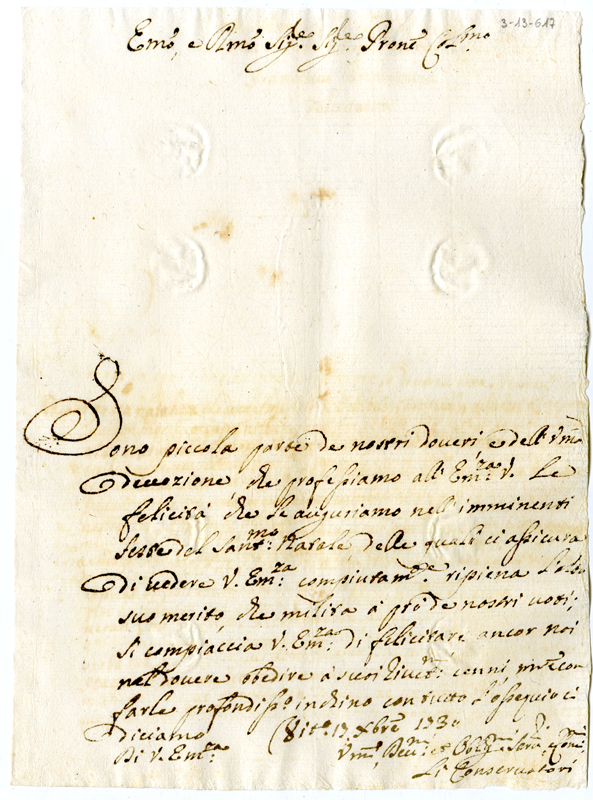 3-13-617
Emo, e Rmo Sigre Sigre Prone Colmo
Sono piccola parte de nostri doveri e dell' Vma
devozione, che professiamo all' Emza V. Le
felicità, che Le auguriamo nell' imminenti
feste del Santmo: Natale, delle quali ci assicura
di vedere V. Emza: compiutamte: ripiena l'alto
suo merito, che milita à prò de nostri voti;
Si compiaccia V. Emza: di felicitare ancor noi
nel dovere obedire à suoi cenni, mntre con
farle profondisso inchino con tutto l'ossequio ci
diciamo
Di V. Emza:
13 Xbre
Li Conservatori